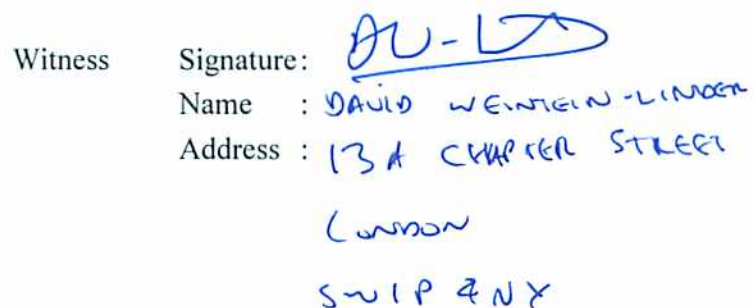 Witness Signature:
Name : DAVID WEINTEIN-LINDER
Address : 13A CHAPTER STREET
LONDON
SW1P 4NY